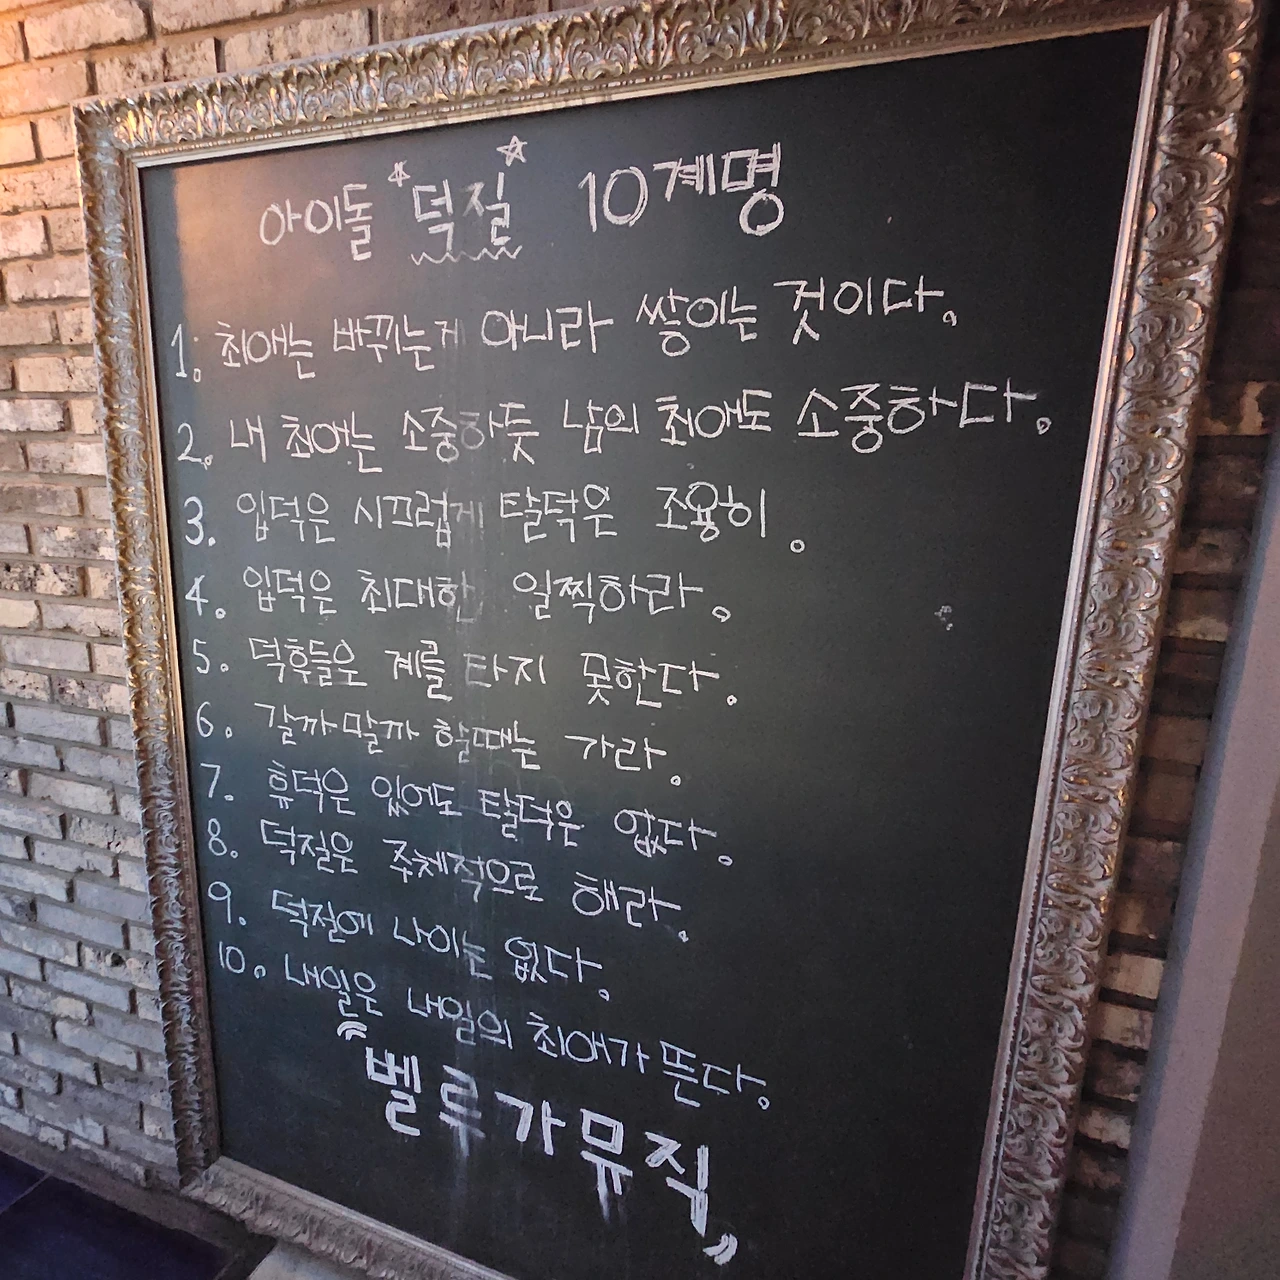 아이돌 "덕질" 10계명
1. 최애는 바뀌는게 아니라 쌓이는 것이다.
2. 내 최애는 소중하듯 남의 최애도 소중하다.
3. 입덕은 시끄럽게 탈덕은 조용히.
4. 입덕은 최대한 일찍하라.
5. 덕후들은 계를 타지 못한다.
6. 갈까말까 할때는 가라.
7. 휴덕은 있어도 탈덕은 없다.
8. 덕질은 주체적으로 해라.
9. 덕질에 나이는 없다.
10. 내일은 내일의 최애가 뜬다.
"벨루가뮤직"